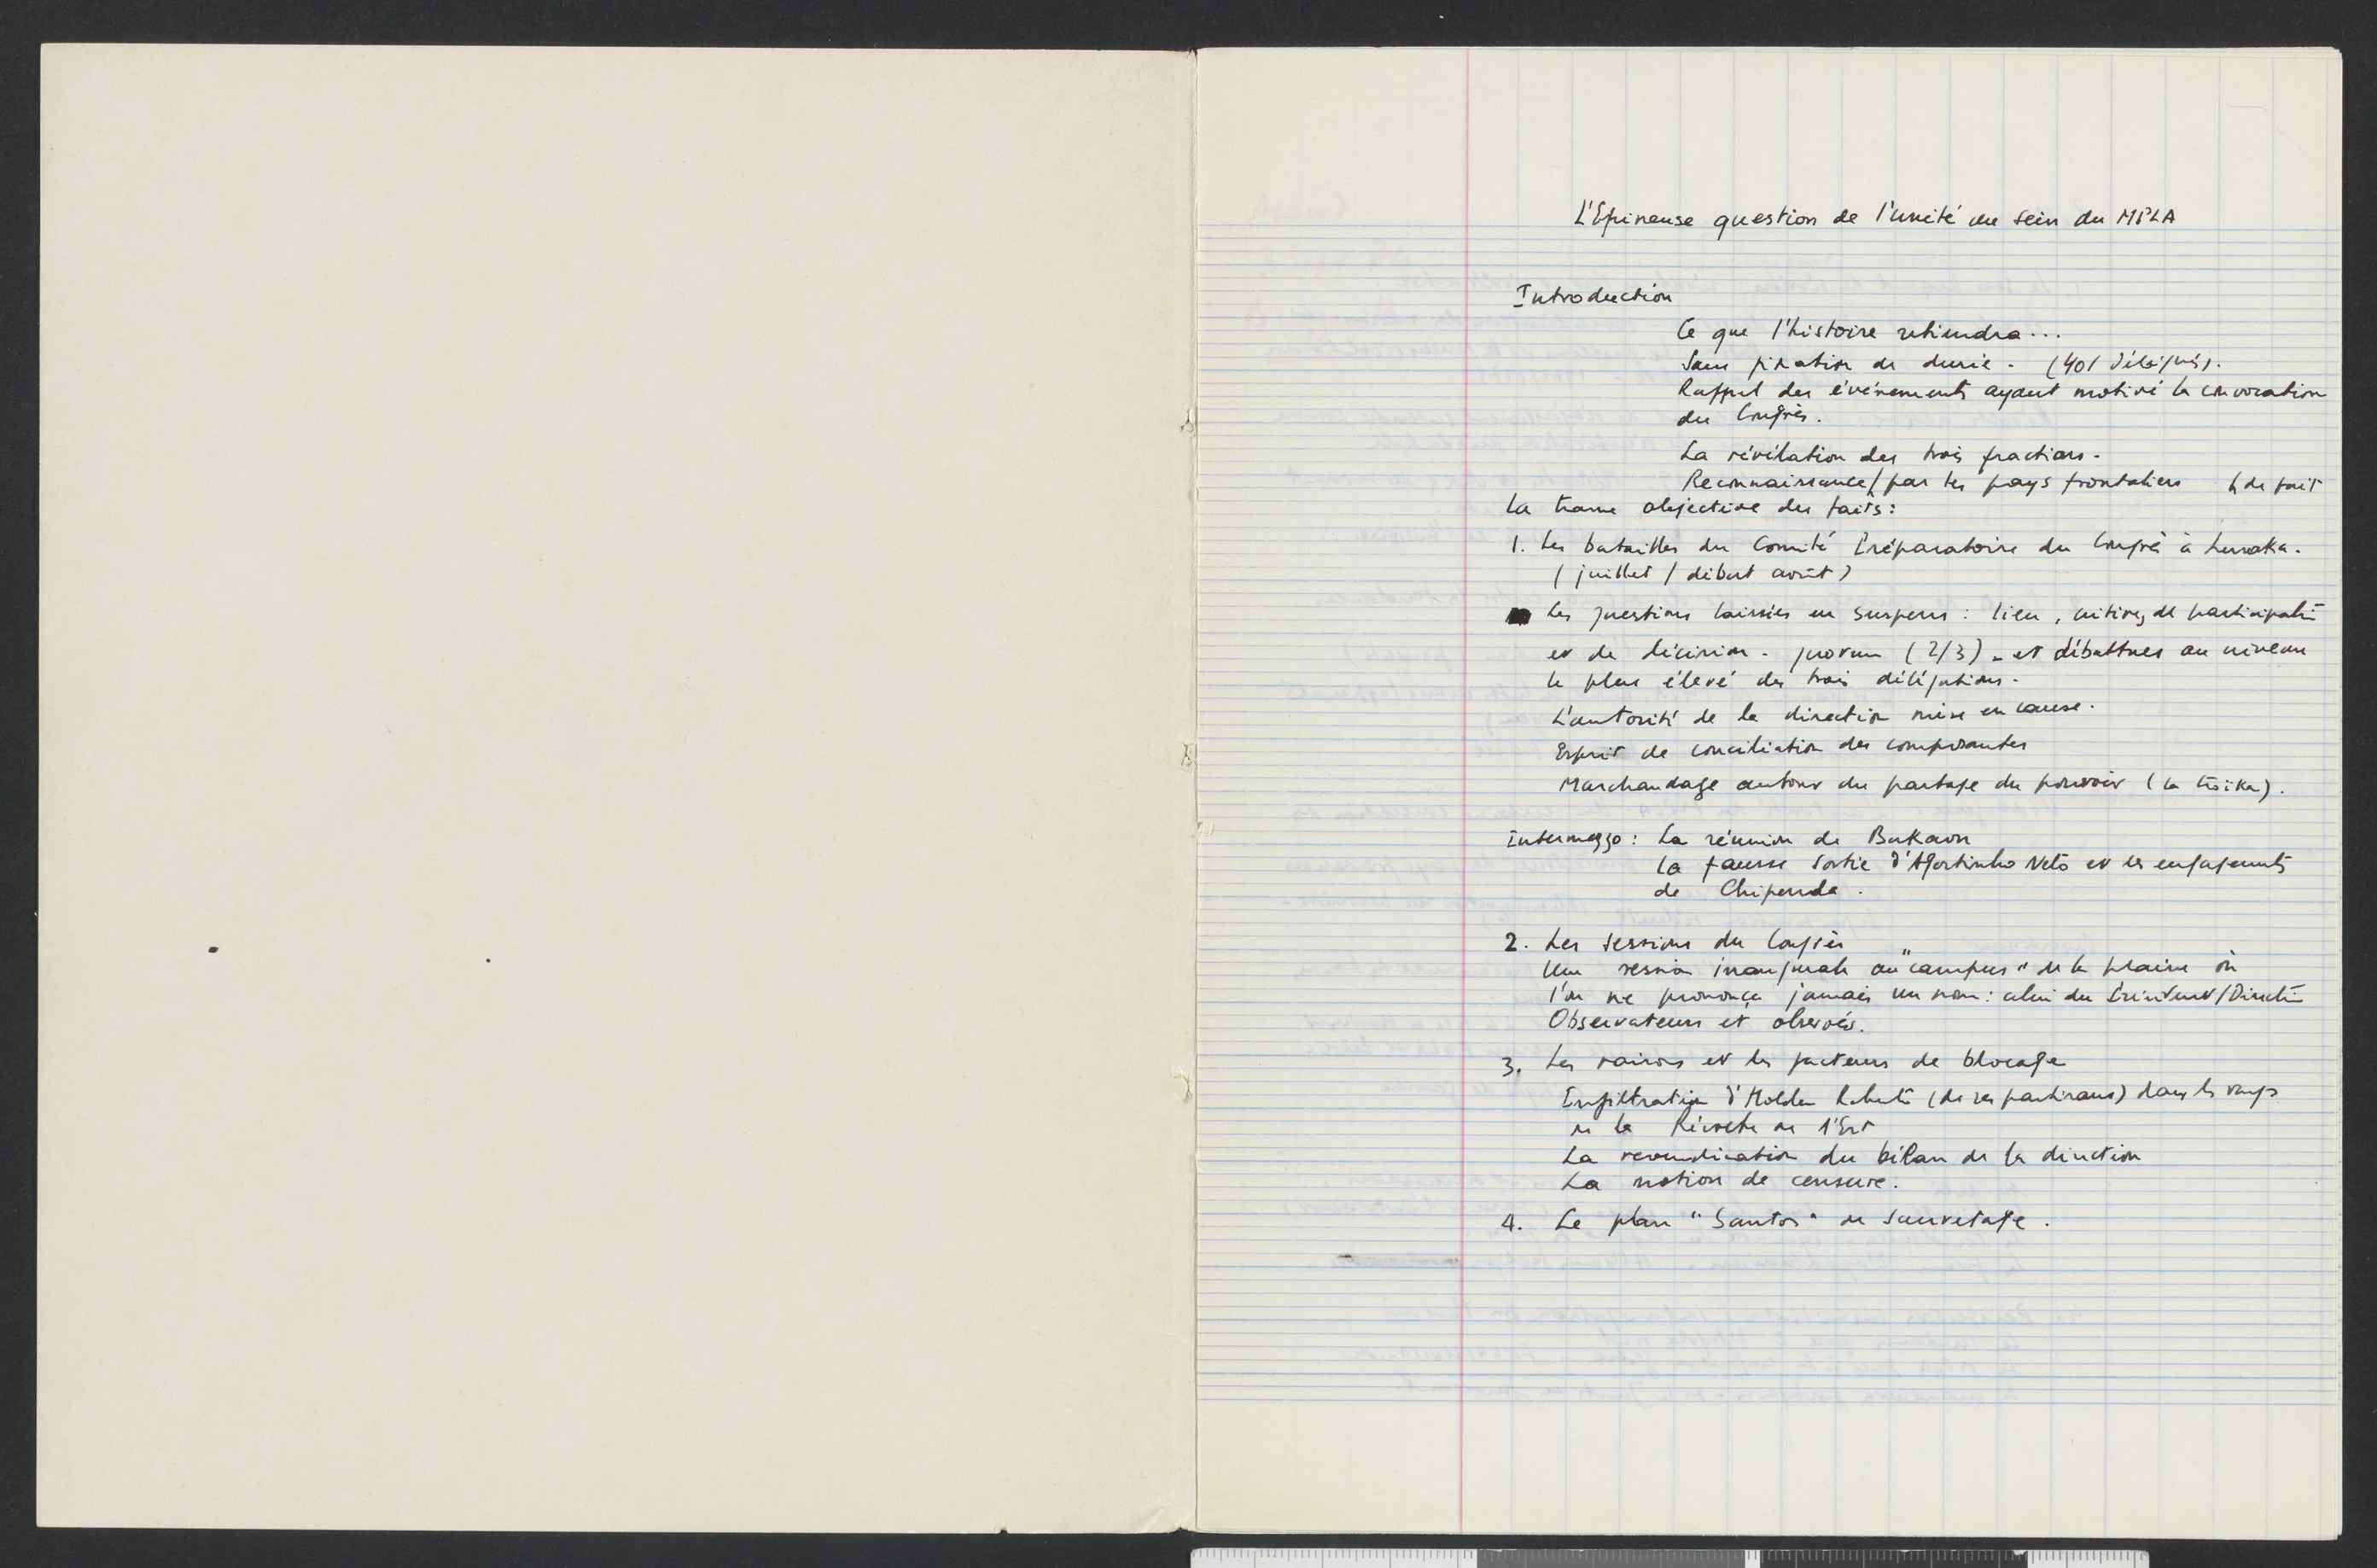 L'Epineuse question de l'unité au sein du MPLA
Introduction
Ce que l'histoire retiendra...
Sans fixation de durée. (401 délégués).
Rappel des événements ayant motivé la convocation
du Congrès.
La révélation des trois fractions.
Reconnaissance / par les pays frontaliers de fait
La trame objective des faits:
1. Les batailles du Comité Préparatoire du Congrès à Lusaka.
(juillet / début août)
Les questions laissées en suspens : lieu, critères de participati
et de décision - quorum (2/3) - et débattues au niveau
le plus élevé des trois délégations.
L'autorité de la direction mise en cause.
Esprit de conciliation des composantes
Marchandage autour du partage du pouvoir (la troïka).
Intermezzo : La réunion de Bukavu
La fausse sortie d'Agostinho Neto et les engagements
de Chipenda.
2. Les sessions du Congrès
Une session inaugurale au "campus" de la plaine où
l'on ne prononça jamais un nom : celui du Président/Directi
Observateurs et observés.
3. Les raisons et les facteurs de blocage
Infiltration d'Holden Roberto (de ses partisans) dans les rangs
de la Révolte de l'Est
La revendication du bilan de la direction
La motion de censure.
4. Le plan "Santos" de sauvetage.